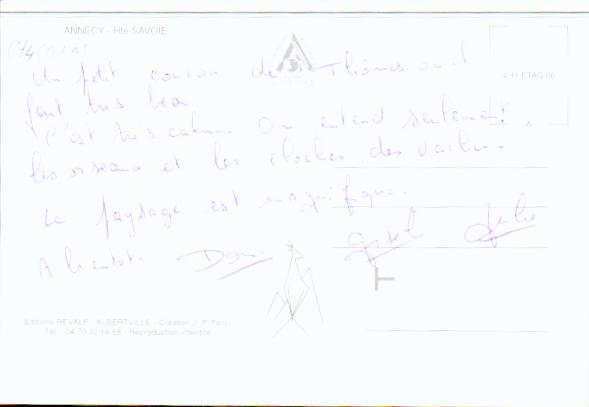 ANNECY - Hte SAVOIE
4 11 ETAQ 06
Un petit coucou de Thônes où il
fait très beau.
C'est très calme On entend seulement
les oiseaux et les cloches des vaches.
Le paysage est magnifique.
A bientôt.
Editions REVALP ALBERTVILLE - Création J. P.
Tél. 04 79 32 14 68 - Reproduction interdite